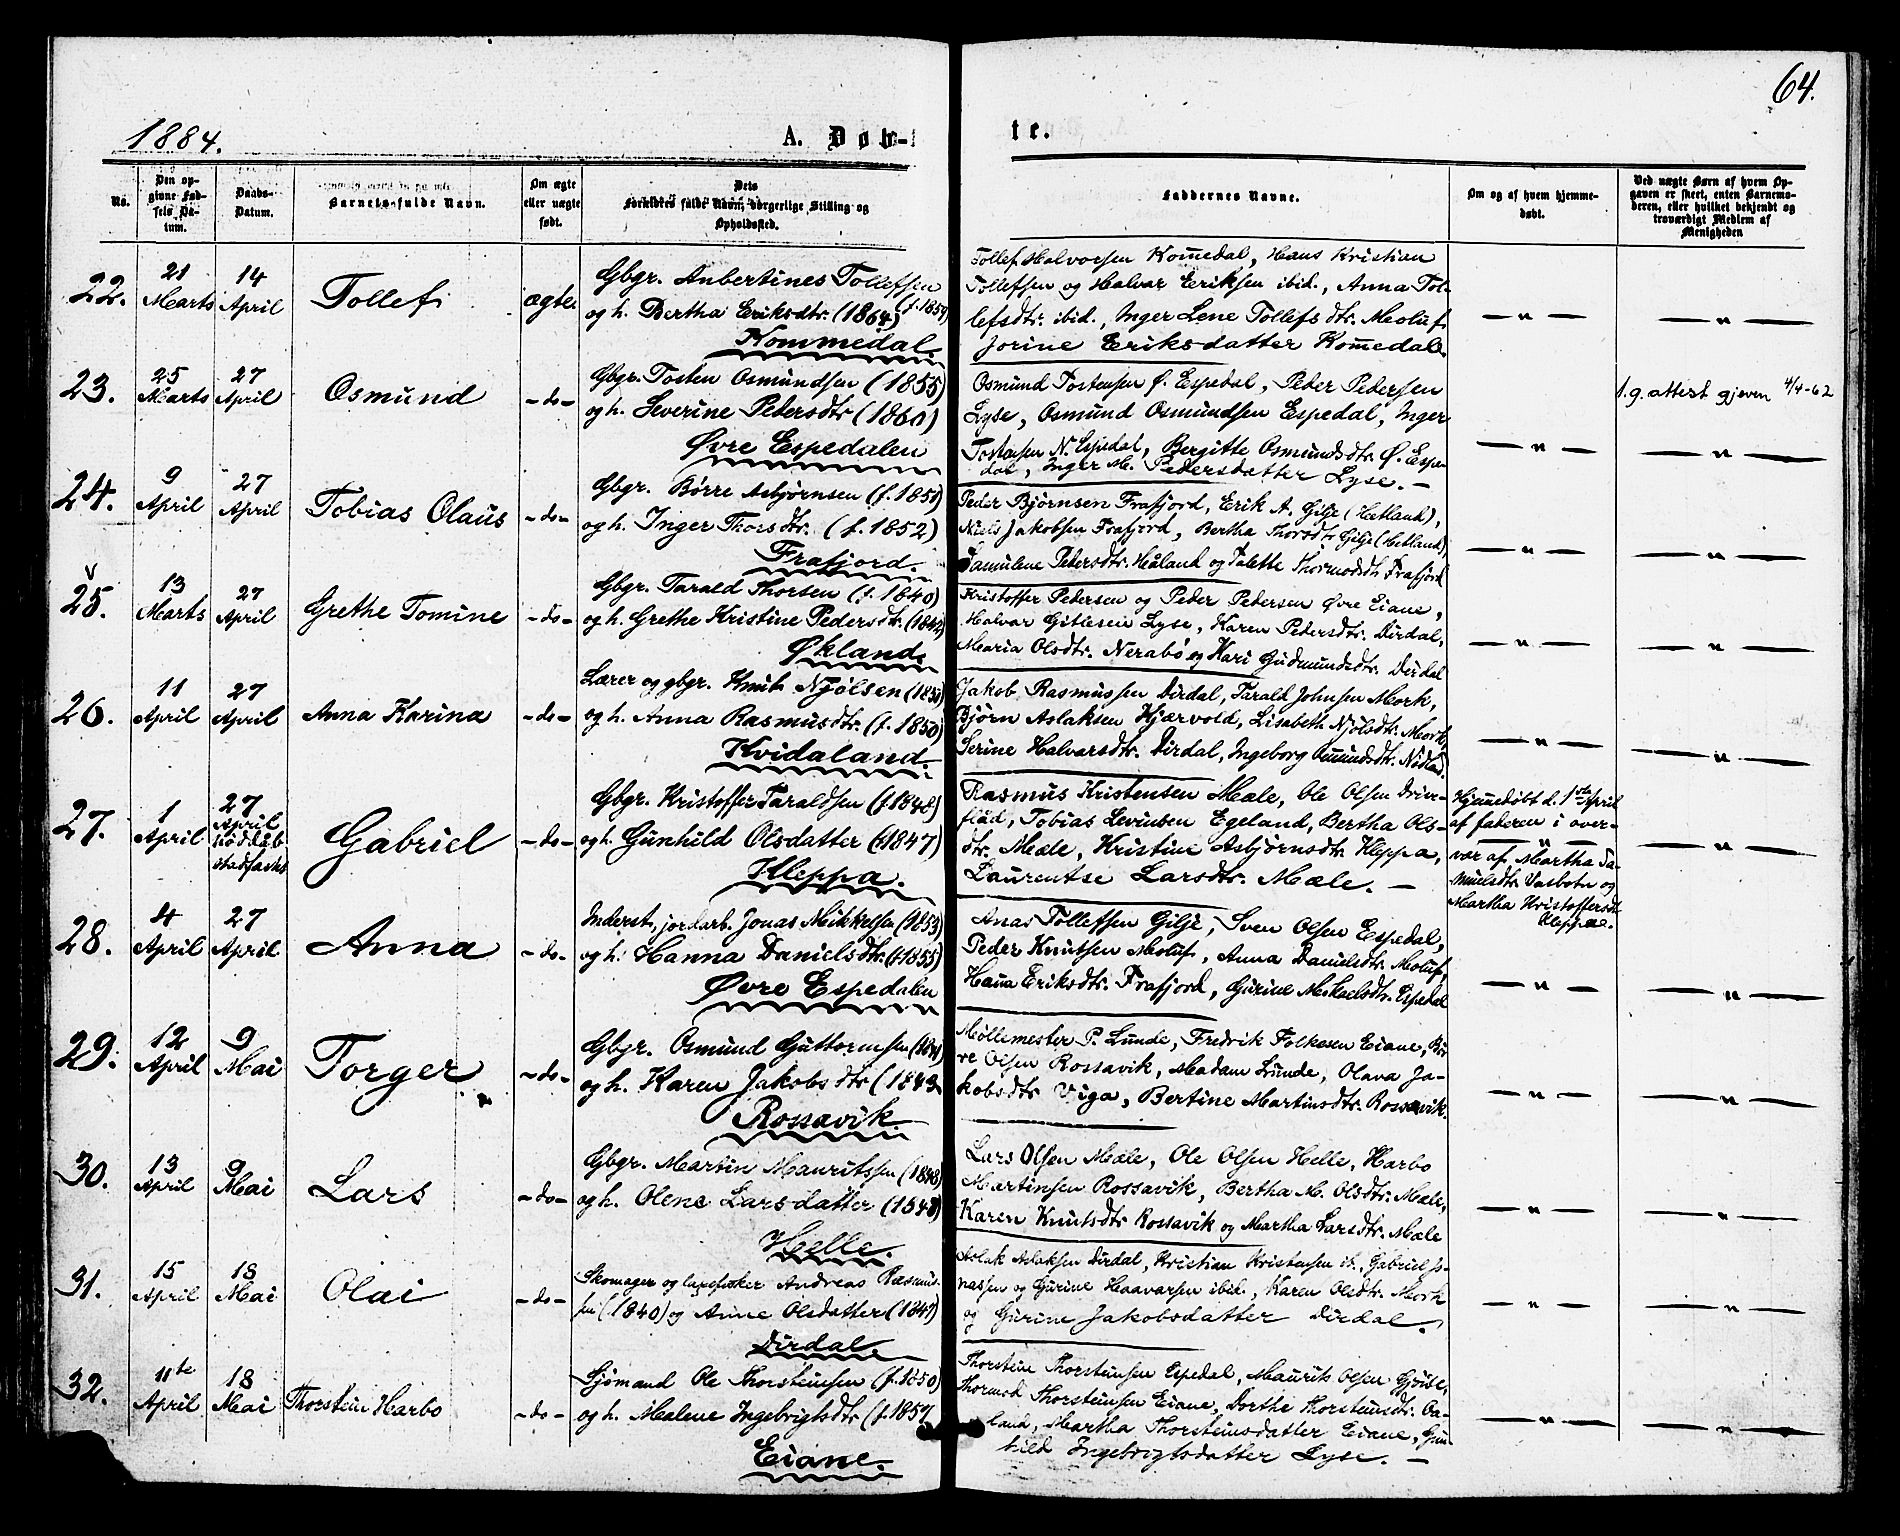 64.
1884.
A. Døb-
te.
No.
Den op-
givne Fød-
sels Da-
tum.
Daabs-
Datum.
Barnets fulde Navn.
Om ægte
eller uægte
født.
Dets
Forældres fulde Navn, borgerlige Stilling og
Opholdssted.
Faddernes Navne.
Om og af hvem hjemme-
døbt.
Ved uægte Børn af hvem Op-
gaven er skeet, enten Barnemo-
deren, eller hvilket bekjendt og
troværdigt Medlem af
Menigheden
22.
21
Marts
14
April
Tollef
ægte.
Gbgr. Anbertines Tollefsen
og h. Bertha Eriksdtr. (1864) (f. 1859)
Kommedal.
Tollef Halvorsen Komedal, Hans Kristian
Tollefsen og Halvar Eriksen ibid., Anna Tol-
lefsdtr. ibid., Inger Lene Tollefsdtr. Meluf
Jorine Eriksdatter Komedal.
— " —
— " —
23.
25
Marts
27
April
Osmund
- do -
Gbgr. Tosten Osmundsen (1855)
og h. Severine Pedersdtr (1860)
Øvre Espedalen
Osmund Tostensen Ø. Espedal, Peder Pedersen
Lyse, Osmund Osmundsen Espedal, Inger
Tostensen N. Espedal, Bergitte Osmundsdtr. Ø. Espe-
dal, Inger M. Pedersdatter Lyse. —
— " —
1.g. attest gjeven 4/4-62
— " —
24.
9
April
27
April
Tobias Olaus
- do -
Gbgr. Børre Asbjørnsen (f. 1851)
og h. Inger Thorsdtr. (f. 1852)
Frafjord.
Peder Bjørnsen Frafjord, Erik A. Gilje (Hetland),
Niels Jakobsen Frafjord, Bertha Thorsdtr Gilje (Hetland),
Samulene Pedersdtr. Håland og Talette Thormodsdtr Frafjord
— " —
— " —
v
25.
13
Marts
27
April
Grethe Tomine
- do -
Gbgr. Tarald Thorsen (f. 1840)
og h. Grethe Kristine Pedersdtr. (1842)
Økland.
Kristoffer Pedersen og Peder Pedersen Øvre Eiane,
Halvar Gitlesen Lyse, Karen Pedersdtr. Dirdal,
Maria Olsdtr. Nerabø og Kari Gudmundsdtr. Dirdal
— " —
— " —
26.
11
April
27
April
Anna Karina
- do -
Lærer og gbgr. Knut Njølsen
og h. Anna Rasmusdtr. (f. 1850)
Kvidaland.
Jakob Rasmussen Dirdal, Tarald Johnsen Mork,
Bjørn Aslaksen Kjærvold, Lisabeth Njølsdtr. Mork,
Serine Halvarsdtr. Dirdal, Ingeborg
— " —
— " —
27.
1
April
27
April
nøddåb
stadfæstet
Gabriel
- do -
Gbgr. Kristoffer Taraldsen (f. 1848)
og h. Gunhild Olsdatter (f. 1847)
Kleppa.
Rasmus Kristensen Mæle, Ole Olsen Drier-
flåd, Tobias Levinsen Egeland, Bertha Ols-
dtr. Mæle, Kristine Asbjørnsdtr Kleppa,
Laurentse Larsdtr. Mæle. —
Hjemmedøbt d. 1ste April
af faderen i over-
vær af Martha Sa-
muelsdtr. Vasbotn og
Martha Kristoffersdtr.
Kleppa.
— " —
28.
4
April
27
April
Anna
- do -
Inderst, jordarb. Jonas Mikkelsen (1853)
og h. Hanna Danielsdtr. (f. 1855)
Øvre Espedalen
Anas Tollefsen Gilje, Sven Olsen Espedal,
Peder Knutsen Meluf, Anna Danielsdtr. Meluf,
Hana Eriksdtr. Frafjord, Gurine Mikaelsdtr. Espedal
— " —
— " —
29.
12
April
9
Mai
Torger
- do -
Gbgr. Osmund Guttormsen
og h. Karen Jakobsdtr (1843
Rossavik
Møllemester P. Lunde, Fredrik Folkesen Eiane, Bør-
re Olsen Rossavik, Madam Lunde, Olava Ja-
kobsdtr Viga, Bertine Martinsdtr. Rossavik.
— " —
— " —
30.
13
April
9
Mai
Lars
- do -
Gbgr. Martin Mauritssen (1848)
og h. Olene Larsdatter (1848)
Helle.
Lars Olsen Mæle, Ole Olsen Helle, Harbo
Martinsen Rossavik, Bertha M. Olsdtr. Mæle,
Karen Knutsdtr Rossavik og Martha Larsdtr. Mæle
— " —
— " —
31.
15
April
18
Mai
Olai
- do -
Skomager og Andreas Rasmus-
sen (1840) og Anne Olsdatter (1847)
Dirdal.
Aslak Aslaksen Dirdal, Kristian Kristensen ib., Gabriel Jo-
nassen og Gurine Haavarsen ibid., Karen Olsdtr. Mork
og Gurine Jakobsdatter Dirdal.
— " —
— " —
32.
11te
April
18
Mai
Thorstein Harbo
- do -
Sjømand Ole Thorsteinsen (f. 1850)
og h. Malene Ingebrigtsdtr (f. 1857
Eiane.
Thorstein Thorsteinsen Espedal, Maurits Olsen Gjøse,
Thormod Thorsteinsen Eiane, Dorthe Thorsteinsdtr. Oa-
land, Martha Thorsteinsdatter Eiane, Gun-
hild Ingebrigtsdatter Lyse. —
— " —
— " —